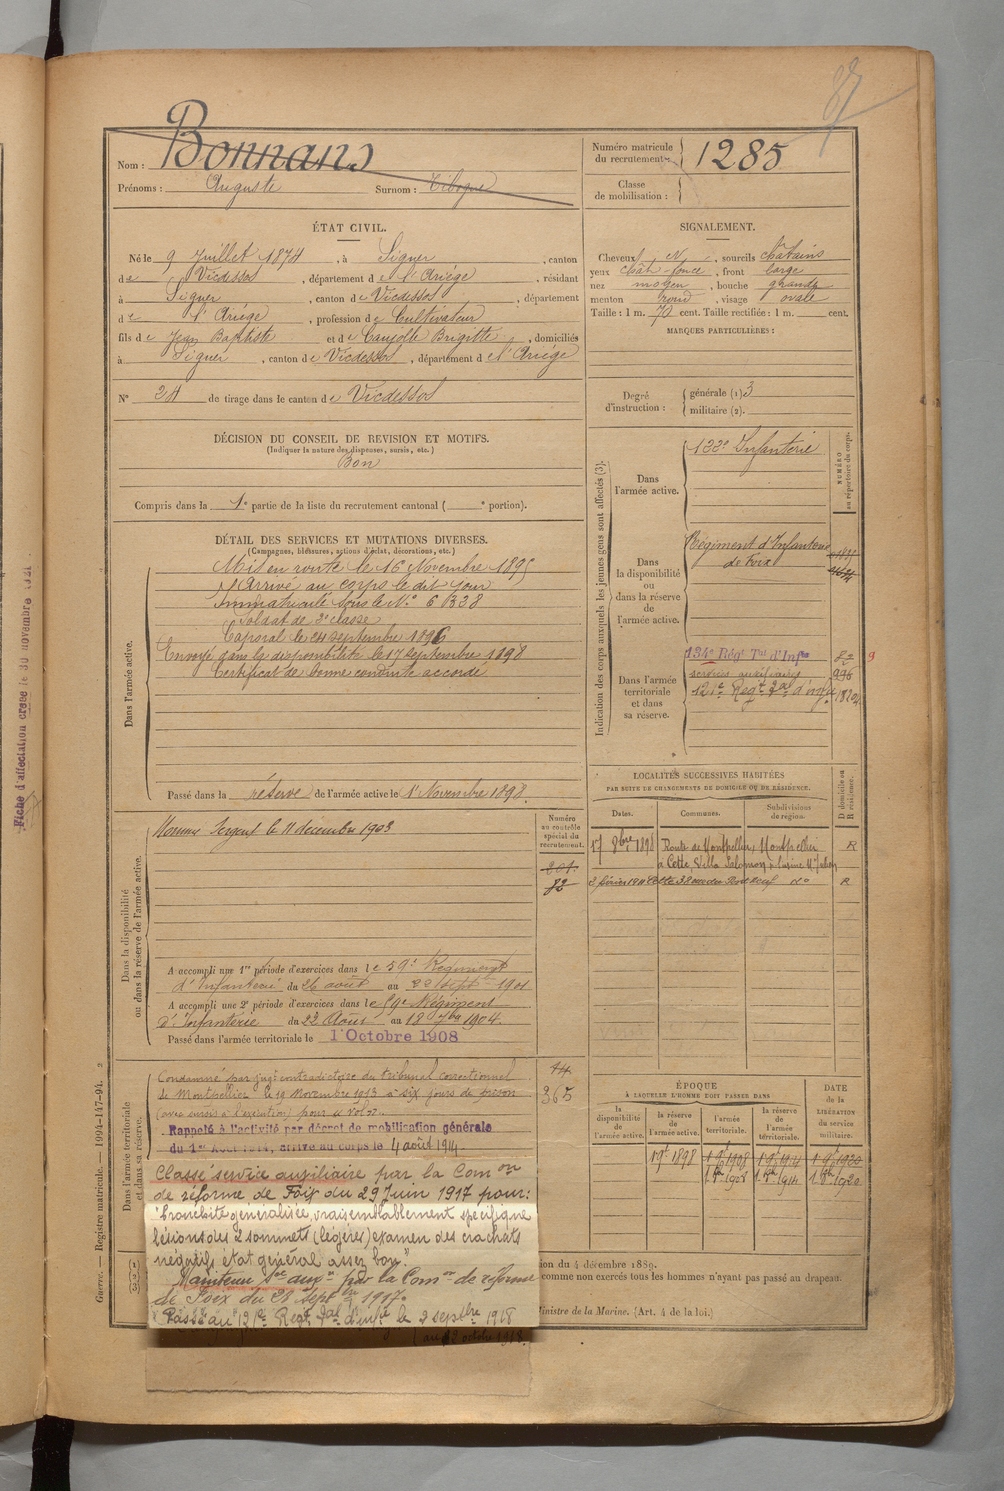 87
Nom : Bonnans
Prénoms : Auguste Surnom :
Numéro matricule du recrutement : 1285
Classe de mobilisation :
ÉTAT CIVIL.
Né le 9 Juillet 1874, à Siguer, canton
de Vicdessos, département de l'Ariège, résidant
à Siguer, canton de Vicdessos, département
de l'Ariège, profession de Cultivateur
fils de Jean Baptiste et de Caujolle Brigitte, domiciliés
à Siguer, canton de Vicdessos, département de l'Ariège
N° 24 de tirage dans le canton de Vicdessos
SIGNALEMENT.
Cheveux N, sourcils chatains
yeux chat. foncé, front large
nez moyen, bouche grande
menton rond, visage ovale
Taille : 1 m. 70 cent. Taille rectifiée : 1 m. cent.
MARQUES PARTICULIÈRES :
Degré d'instruction :
générale (1) 3
militaire (2).
DÉCISION DU CONSEIL DE REVISION ET MOTIFS.
(Indiquer la nature des dispenses, sursis, etc.)
Bon
Compris dans la 1e partie de la liste du recrutement cantonal ( e portion).
DÉTAIL DES SERVICES ET MUTATIONS DIVERSES.
(Campagnes, blessures, actions d'éclat, décorations, etc.)
Dans l'armée active.
Mis en route le 16 Novembre 1895
Arrivé au corps le dit jour
Immatriculé sous le N°
Soldat de 2e classe
Caporal le septembre 1896
Envoyé dans la disponibilité le 17 septembre 1898
Certificat de bonne conduite accordé
Passé dans la réserve de l'armée active le 1 Novembre 1898.
Indication des corps auxquels les jeunes gens sont affectés (3).
NUMÉRO au répertoire du corps.
Dans l'armée active.
122e Infanterie
Dans la disponibilité ou dans la réserve de l'armée active.
Régiment d'Infanterie
de Foix
Dans l'armée territoriale et dans sa réserve.
134e Régt Tal d'Infie
services auxiliaires
121e Regt Tal d'infie
LOCALITÉS SUCCESSIVES HABITÉES
PAR SUITE DE CHANGEMENTS DE DOMICILE OU DE RÉSIDENCE.
Dates. Communes. Subdivisions de région. D domicile ou R résidence.
17 8bre 1898 Route de Montpellier Montpellier R
à Cette Villa Salomon à l'usine
3 février 1911 Cette R
Dans la disponibilité ou dans la réserve de l'armée active.
Numéro au contrôle spécial du recrutement.
Nommé Sergent le 11 décembre 1903
82
A accompli une 1re période d'exercices dans le 59e Régiment
d'Infanterie du 26 août au 22 sept 1901
A accompli une 2e période d'exercices dans le 59e Régiment
d'Infanterie du 22 Août au 18 7bre 1904.
Passé dans l'armée territoriale le 1 Octobre 1908
Dans l'armée territoriale et dans sa réserve.
365
Condamné par jugt contradictoire du tribunal correctionnel
de Montpellier le 19 Novembre 1913 à six jours de prison
(avec sursis à l'exécution) pour : Vol.
Rappelé à l'activité par décret de mobilisation générale
du 1er Août 1914, arrivé au corps le 4 août 1914.
Classé service auxiliaire par la Comon
de réforme de Foix du 29 Juin 1917 pour :
"bronchite généralisée, vraisemblablement spécifique
lésions des 2 sommets (légères) examen des crachats
négatif, état général assez bon."
Maintenu Sce auxre par la Comon de réforme
de Foix du 28 Septbre 1917.
Passé au 121e Regt Tal d'infie le 2 septbre 1918
ÉPOQUE
À LAQUELLE L'HOMME DOIT PASSER DANS
la disponibilité de l'armée active. la réserve de l'armée active. l'armée territoriale. la réserve de l'armée territoriale. DATE de la LIBÉRATION du service militaire.
1 9bre 1898 1 9bre 1908 1 9bre 1914 1 9bre 1920
1 8bre 1908 1 8bre 1914 1 8bre 1920
ion du 4 décembre 1889.
comme non exercés tous les hommes n'ayant pas passé au drapeau.
Ministre de la Marine. (Art. 4 de la loi.)
Guerre. — Registre matricule. — 1994-147-94.
Fiche d'affectation créée le 30 novembre 1921